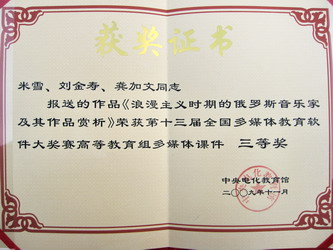 获奖证书
米雪、刘金寿、龚加文同志
报送的作品《浪漫主义时期的俄罗斯音乐家
及其作品赏析》荣获第十三届全国多媒体教育软
件大奖赛高等教育组多媒体课件 三等奖
中央电化教育馆
二〇〇九年十一月